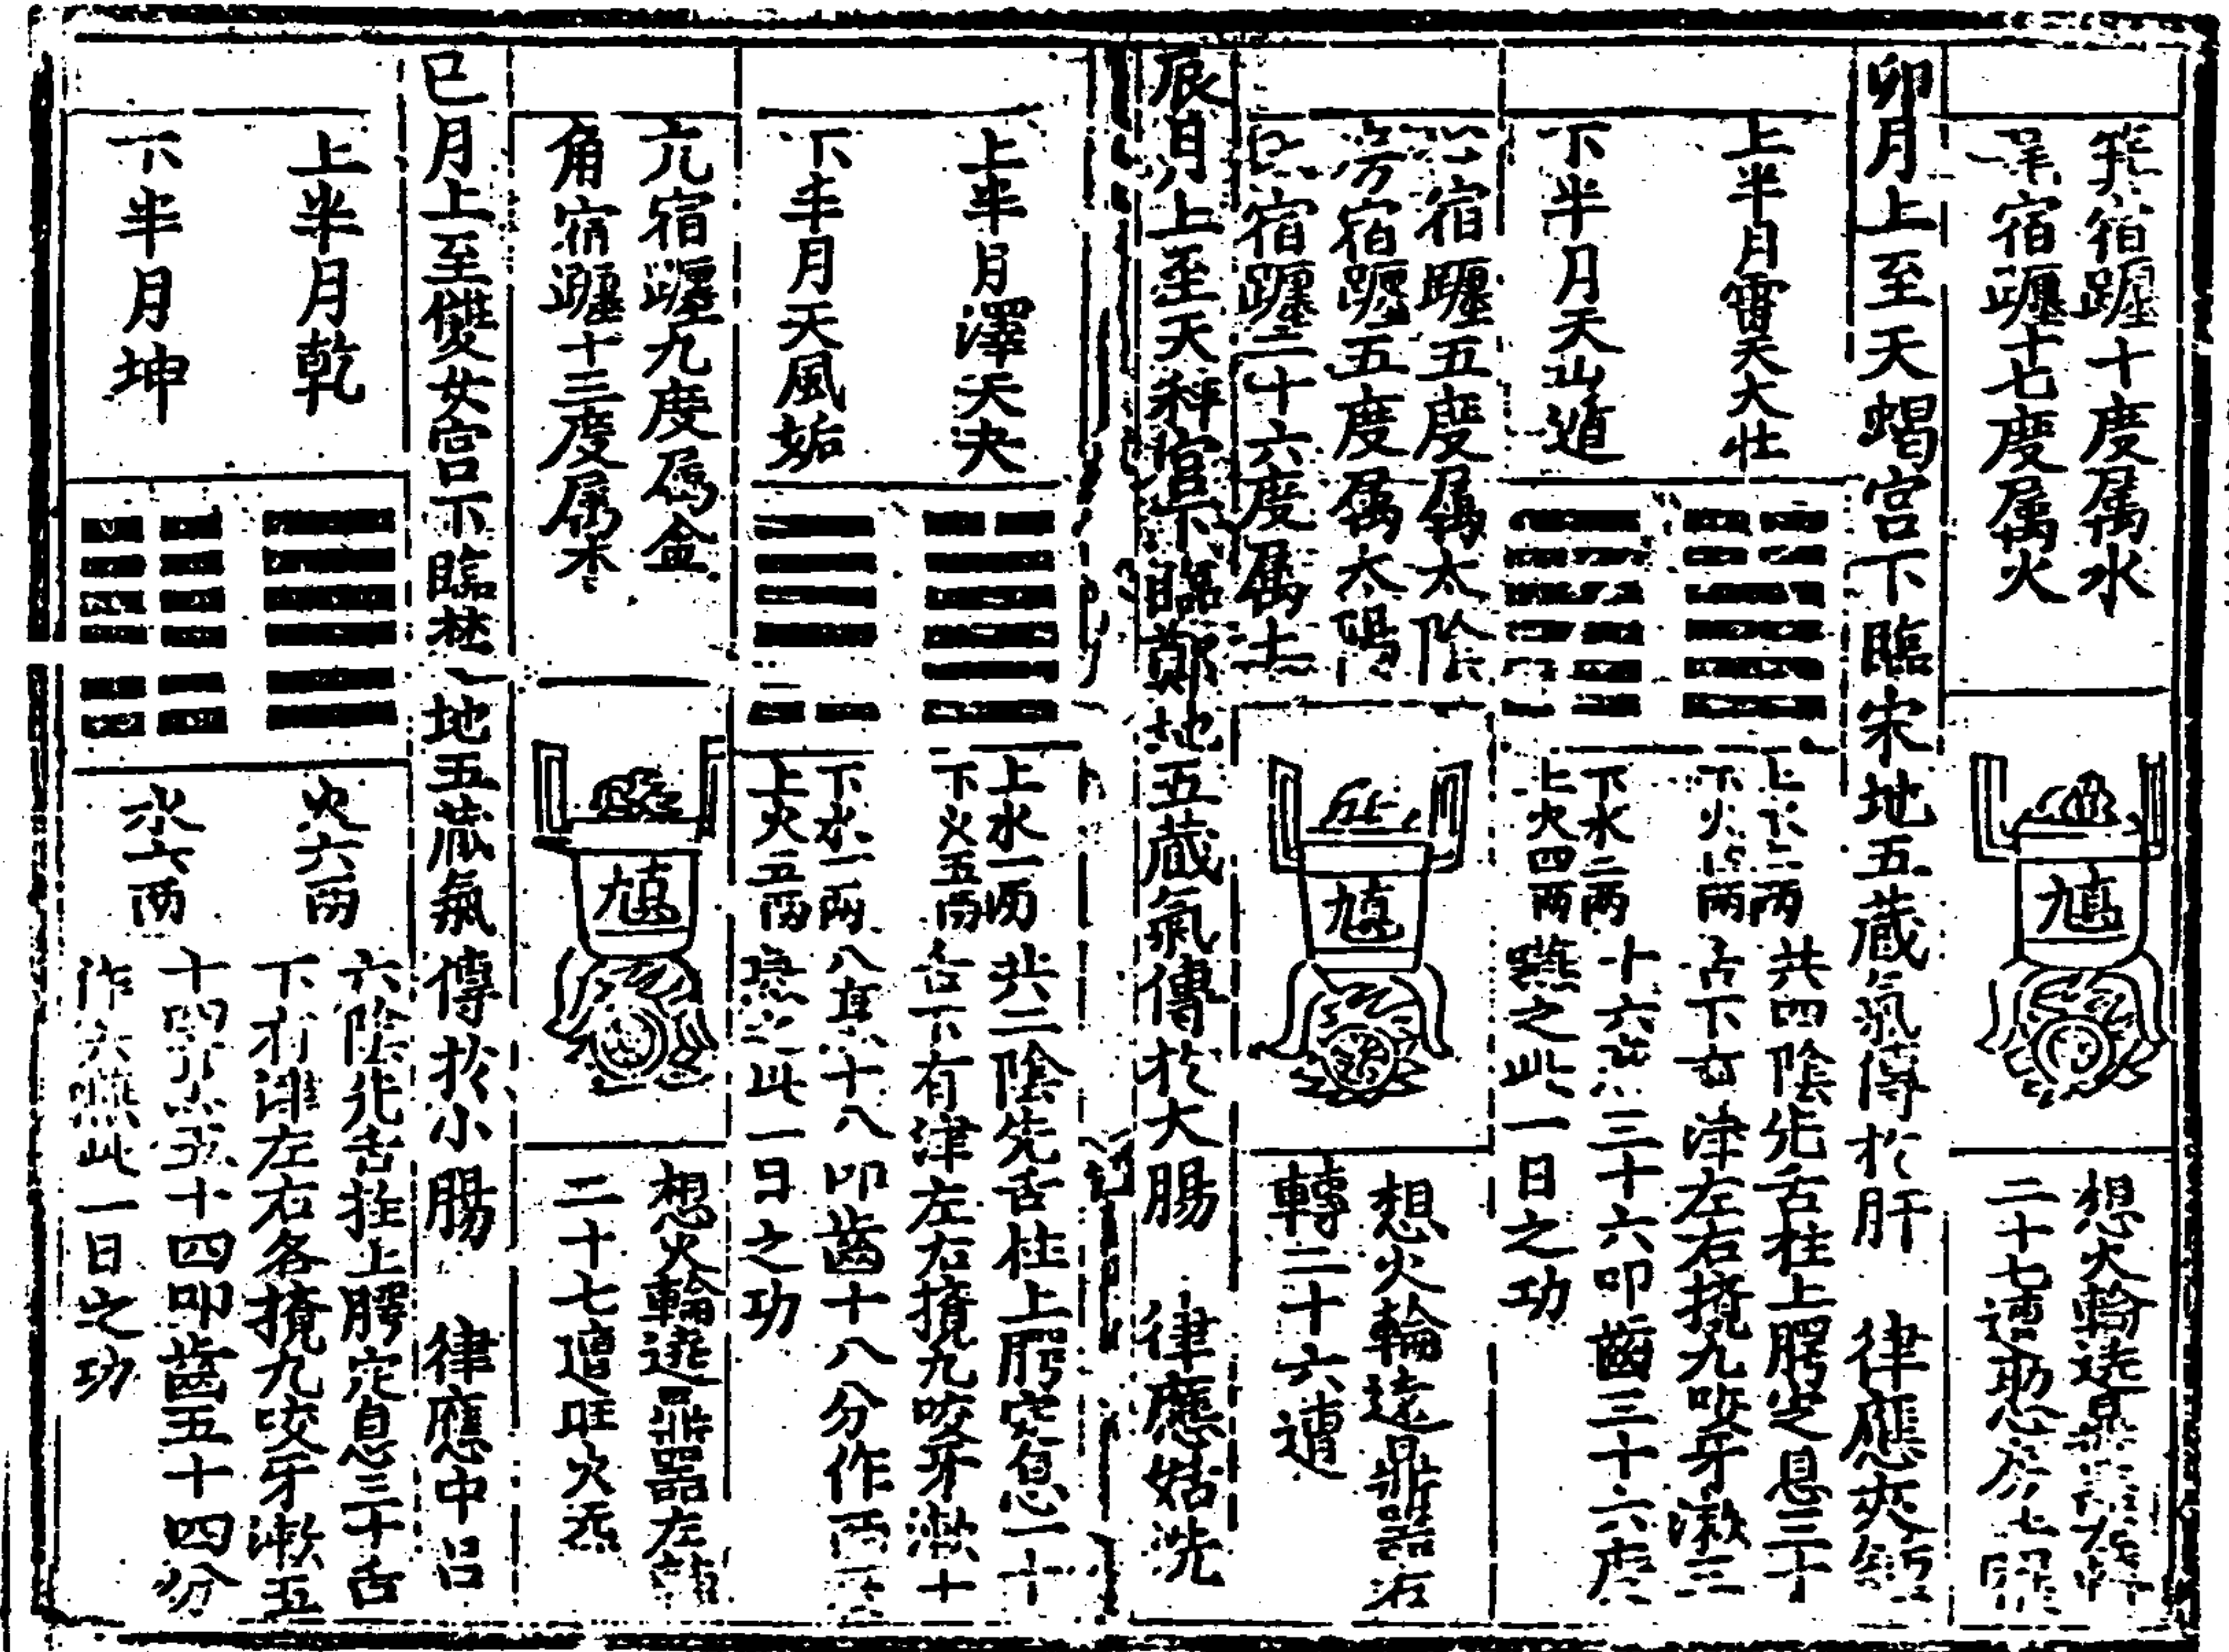 箕宿躔十度属水
尾宿躔十七度属火
想火輪遶鼎
二十七遭
卯月上至天蝎宮下臨宋地五蔵氣傳於肝 律應夾鍾
上半月雷天大壮
下半月天山遁
上水二两
下火四两
下水二两
上火四两
共四陰先舌柱上腭定息三十
舌下有津左右攪九咬牙漱三
十六 三十六叩齒三十六
嚥之此一日之功
心宿躔五度属太陰
房宿躔五度属太陽
氐宿躔二十六度属土
想火輪遶鼎器右
轉二十六遭
辰月上至天秤宮下臨鄭地五蔵氣傳於大腸 律應姑洗
上半月澤天夬
下半月天風姤
上水一两
下火五两
下水一两
上火五两
共二陰先舌柱上腭定息一十
舌下有津左右攪九咬牙漱十
八 十八叩齒十八分作两
此一日之功
亢宿躔九度属金
角宿躔十三度属木
馗
想火輪遶鼎器左轉
二十七遭旺火炁
巳月上至雙女宮下臨楚地五蔵氣傳於小腸 律應中吕
上半月乾
下半月坤
火六两
水六两
六陰先舌拄上腭定息三十舌
下有津左右各攪九咬牙漱五
十四 五十四叩齒五十四分
作六嚥此一日之功